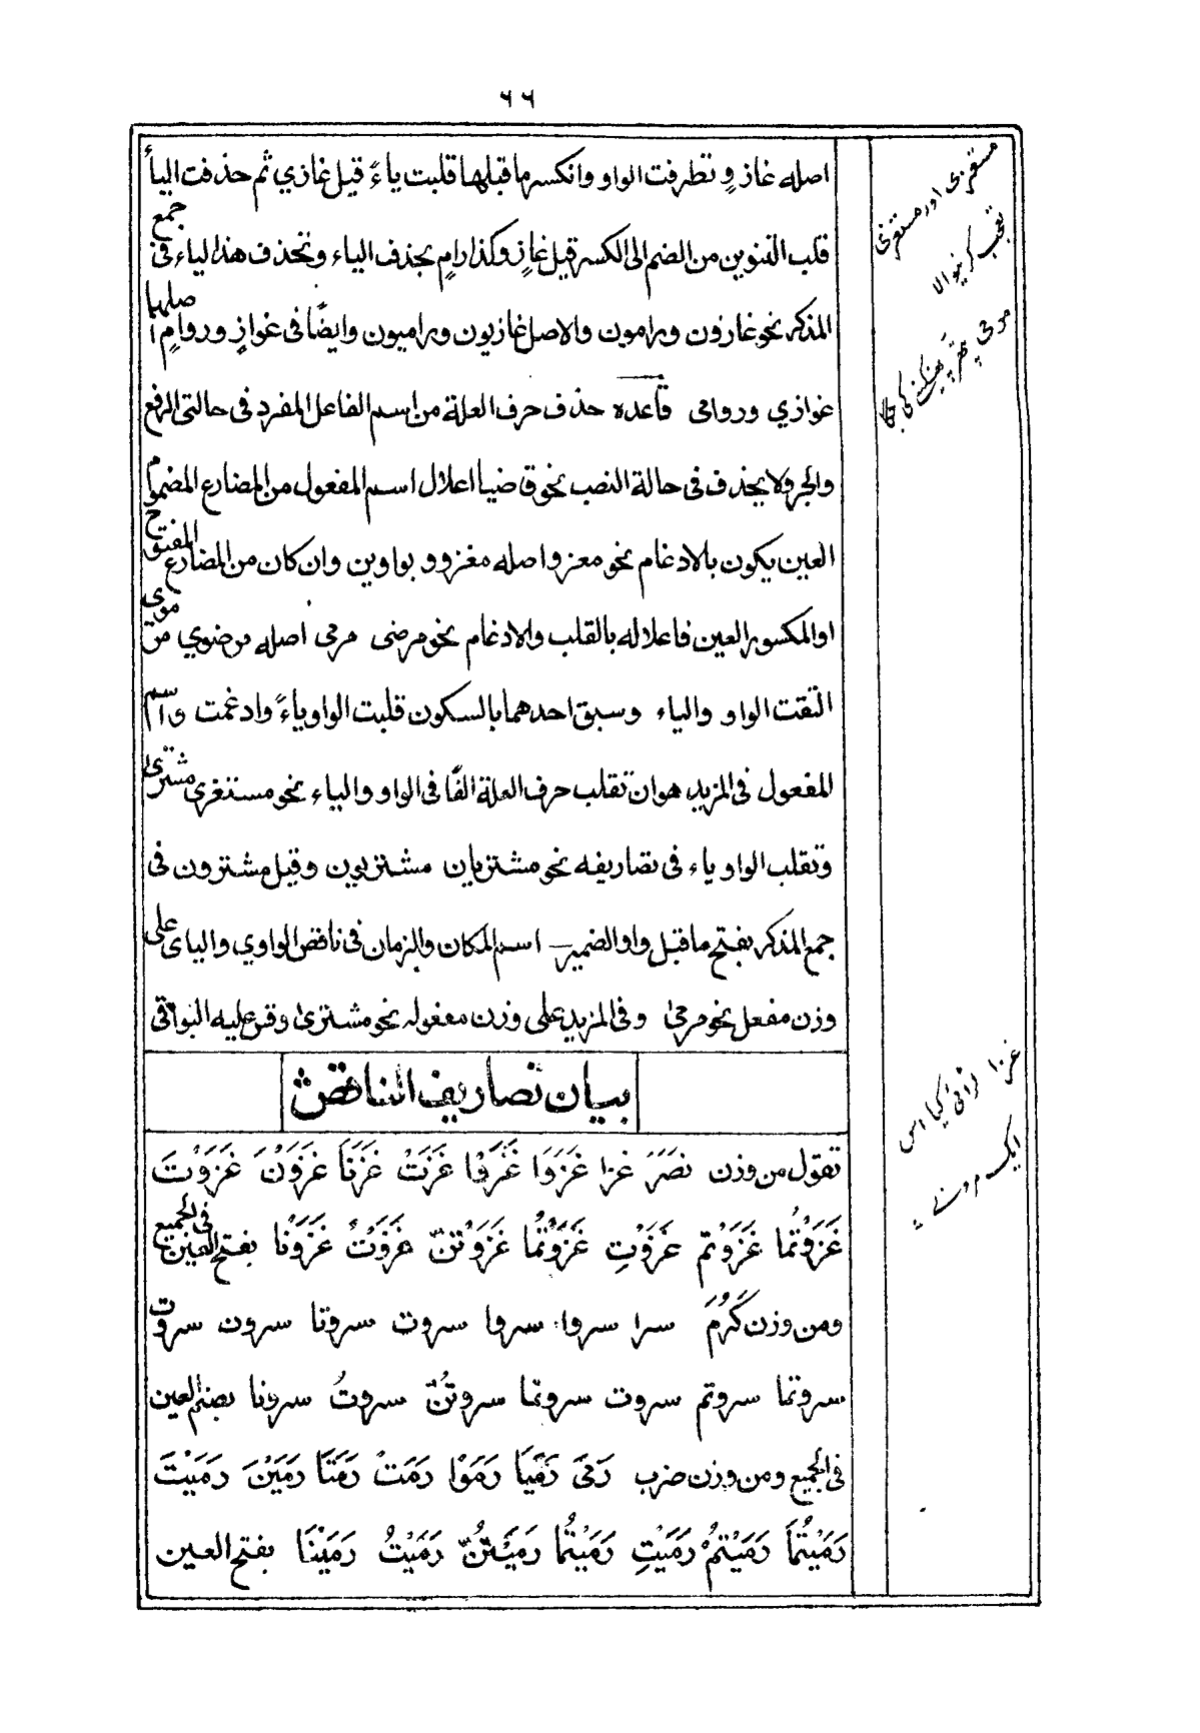 ٦٦
اصله غازوٍ تطرفت الواو وانكسر ما قبلها قلبت ياءً قيل غازي ثم حذفت الياءُ
قلب التنوين من الضم الى الكسر قيل غازٍ وكذا رامٍ بحذف الياء وتحذف هذا لياء فى جمع
المذكر نحو غازون ورامون والاصل غازيون وراميون وايضًا فى غوازٍ وروامٍ اصلها
غوازي وروامى قاعده حذف حرف العلة من اسم الفاعل المفرد فى حالتى الرفع
والجر ولا يحذف فى حالة النصب نحو قاضيا اعلال اسم المفعول من المضارع المضموم
العين يكون بالادغام نحو مغزو اصله مغزوو بواوين وان كان من المضارع المفتوح
او المكسور العين فاعلاله بالقلب والادغام نحو مرضى مرمى اصله مرضوي مرموي
التقت الواو والياء وسبق احدهما بالسكون قلبت الواو ياءً وادغمت واسم
المفعول فى المزيد هو ان تقلب حرف العلة الفًا فى الواو والياء نحو مستغرى مشترىٰ
وتقلب الواو ياء فى تصاريفه نحو مشتريان مشتريين وقيل مشترون فى
جمع المذكر بفتح ما قبل واو الضمير اسم المكان والزمان فى ناقص الواوي والياى على
وزن مفعل نحو مرمىٰ وفى المزيد على وزن مفعوله نحو مشترىٰ وقس عليه البواقى
بيان تصاريف الناقص
تقول من وزن نصَرَ غزا غَزَوَا غَزَوْا غَزَتْ غَزَتَا غَزَوْنَ غَزَوْتَ
غَزَوْتُمَا غَزَوْتم غَزَوْتِ غَزَوْتُمَا غَزَوْتنّ غَزَوْتُ غَزَوْنَا بفتح العين فى الجميع
ومن وزن كَرُمَ سرا سروا سروا سروت سروتا سرون سروت
سروتما سروتم سروت سروتما سروتُنّ سروتُ سرونا بضم العين
فى الجميع ومن وزن ضرب رَمىَ رَمَيَا رَمَوْا رَمَتْ رَمَتَا رَمَيْنَ رَمَيْتَ
رَمَيْتُمَا رَمَيْتمُْ رَمَيْتِ رَمَيْتُمَا رَمَيْتُنّ رَمَيْتُ رَمَيْنَا بفتح العين
تعجب کرنیوالا
مرمی پتھر پھینکنے کی جگہ
غزا لڑائی کیا اس
ایک مرد نے